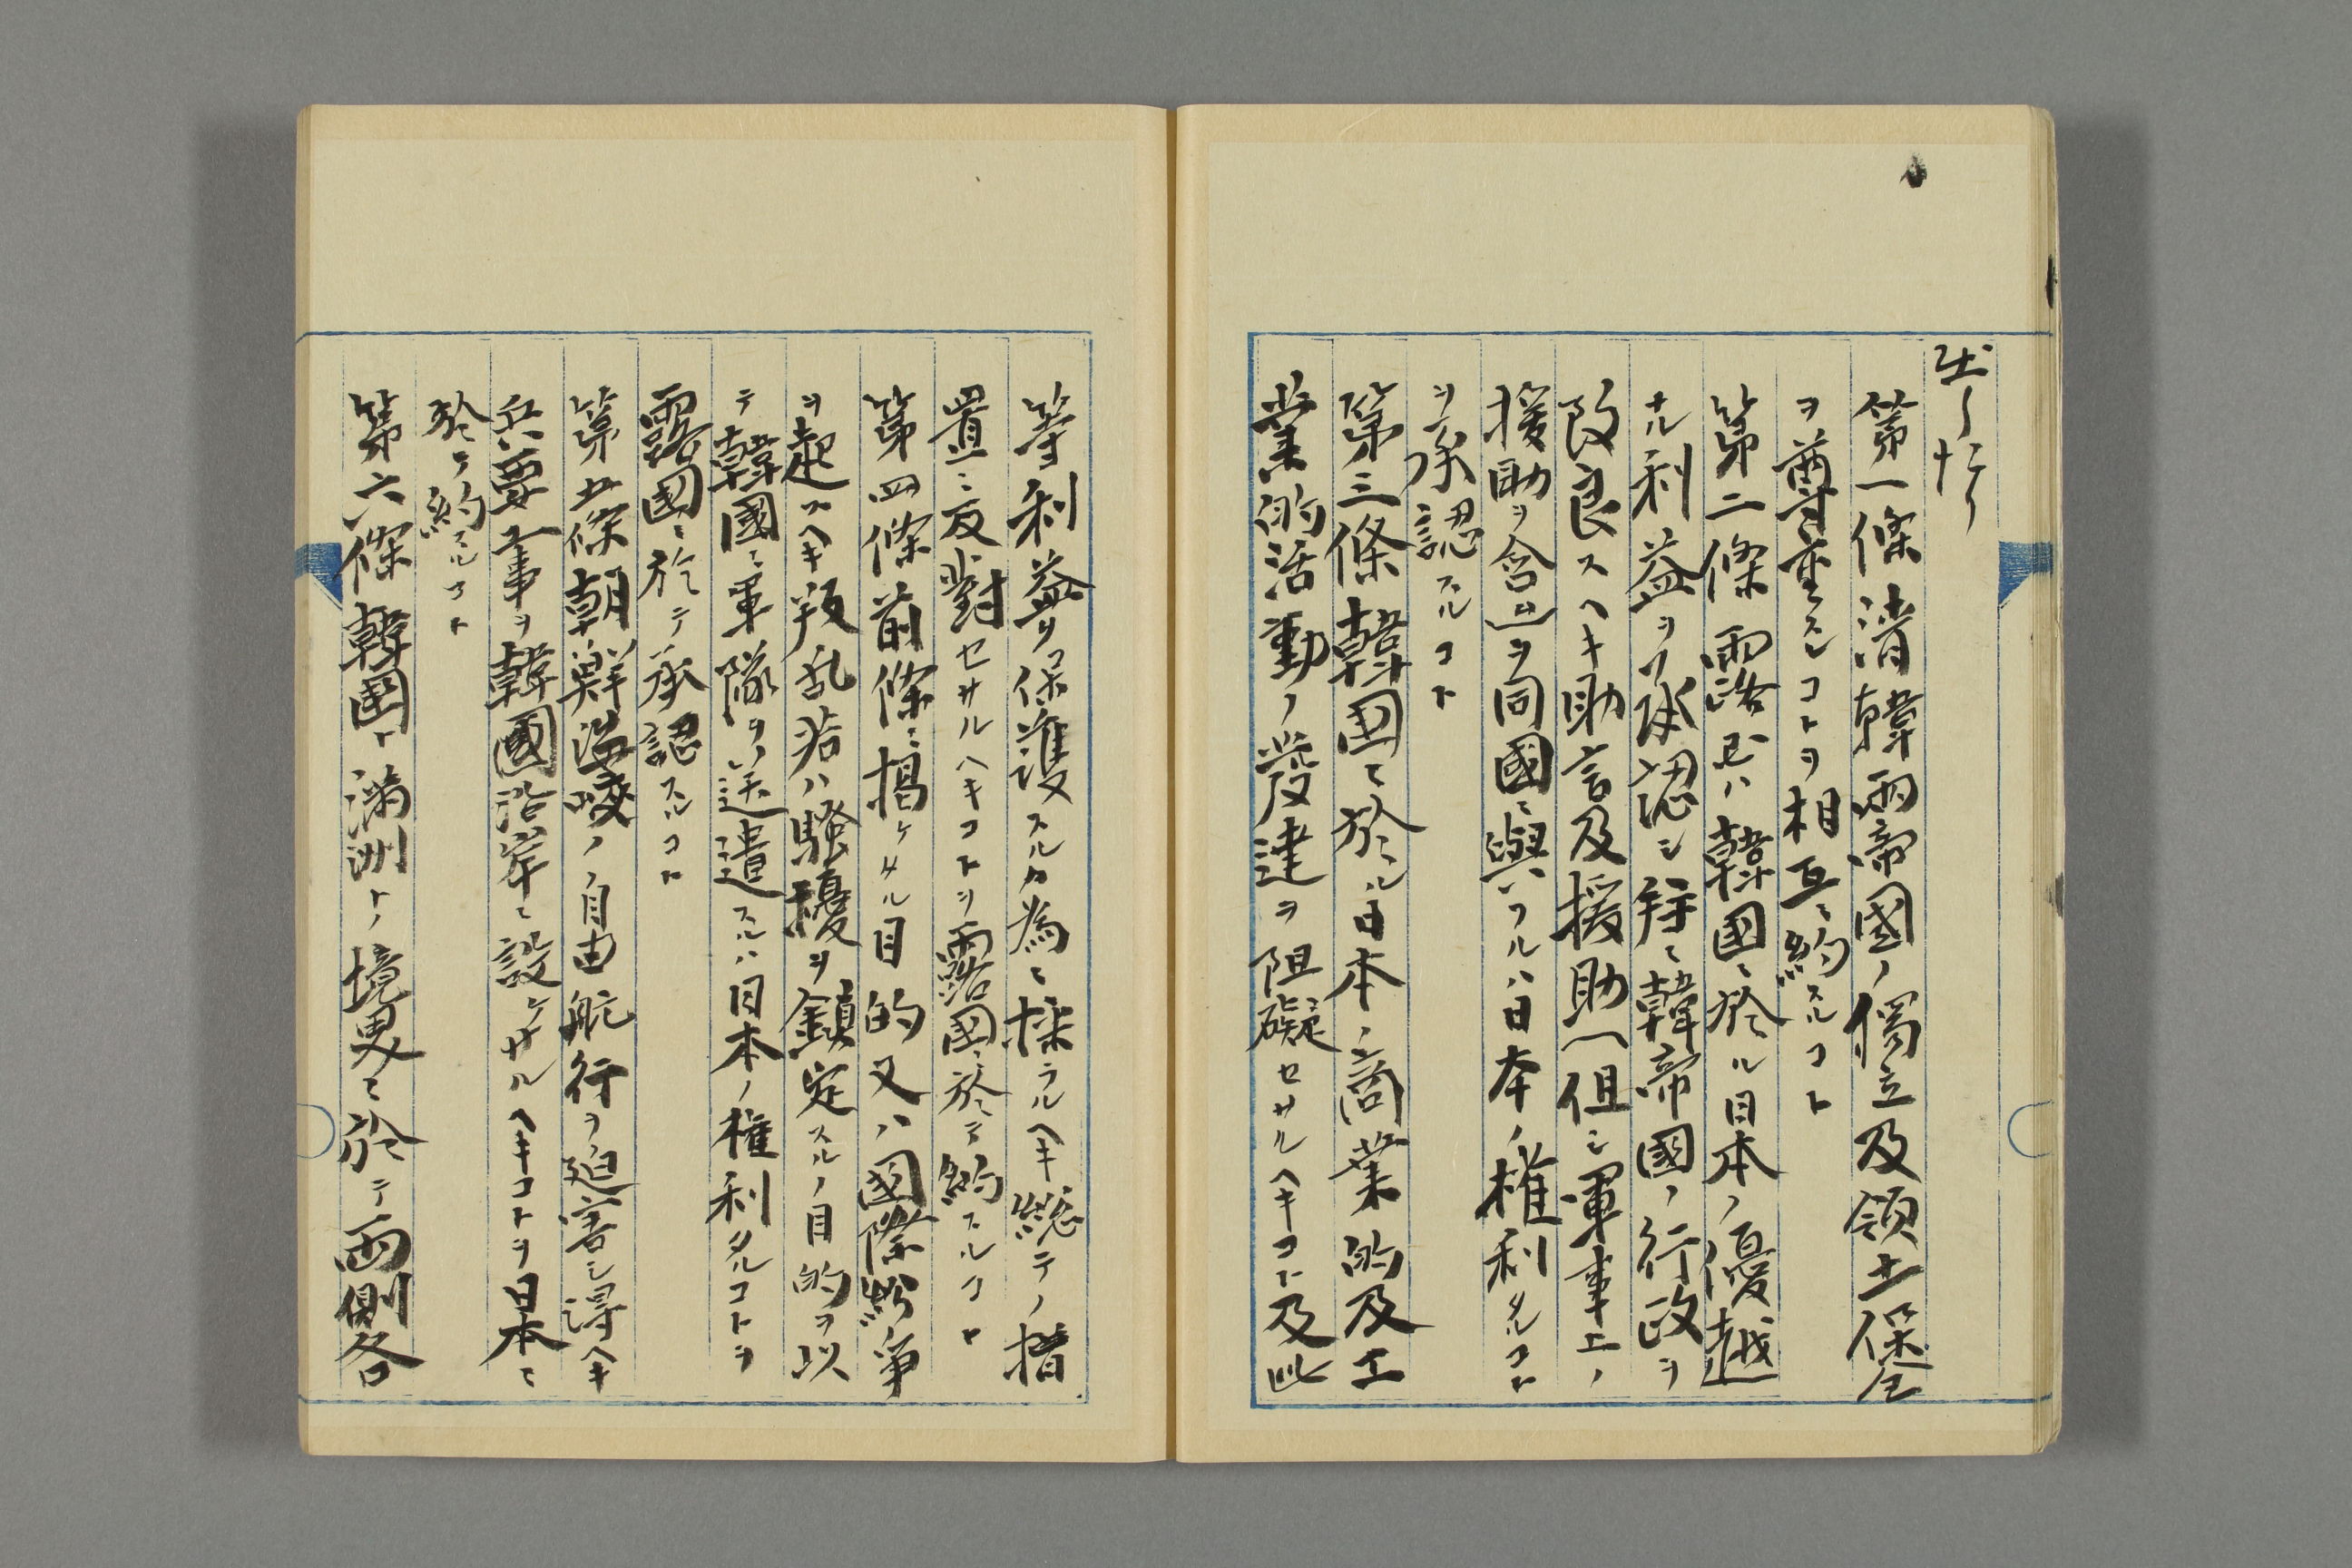 出シタリ
第一條清韓兩帝國ノ獨立及領土保全
ヲ尊重スルコトヲ相互ニ約スルコト
第二條露國ハ韓國ニ於ル日本ノ優越
ナル利益ヲ承認シ并ニ韓帝國ノ行政ヲ
改良スヘキ助言及援助(但シ軍事上ノ
援助ヲ含ム)ヲ同國ニ與フルハ日本ノ權利タルコト
ヲ承認スルコト
第三條韓国ニ於ル日本ノ商業的及工
業的活動ノ發達ヲ阻礙セサルヘキコト及此
等利益ヲ保護スル為ニ採ラルヘキ総テノ措
置ニ反對セサルヘキコトヲ露國ニ於テ約スルコト
第四條前條ニ揭ケタル目的又ハ國際紛争
ヲ起スヘキ叛乱若ハ騒擾ヲ鎮定スルノ目的ヲ以
テ韓國ニ軍隊ヲ送遣スルハ日本ノ權利タルコトヲ
露國ニ於テ承認スルコト
第五條朝鮮海峽ノ自由航行ヲ迫害シ得ヘキ
兵要工事ヲ韓國沿岸ニ設ケサルヘキコトヲ日本ニ
於テ約スルコト
第六條韓國ト満洲トノ境界ニ於テ両側各